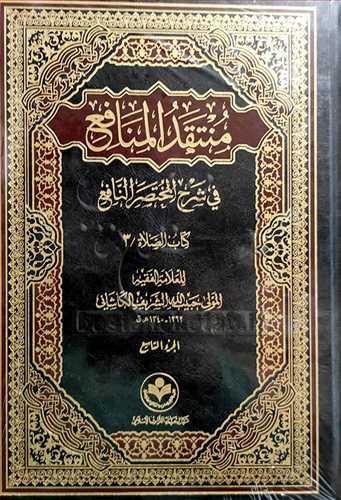 منتقد المنافع
في شرح المختصر النافع
كتاب الصلاة /٣
للعلامة الفقيه
المولى حبيب الله الشريف الكاشاني
١٢٦٢-١٣٤٠ه‍.ق
الجزء التاسع